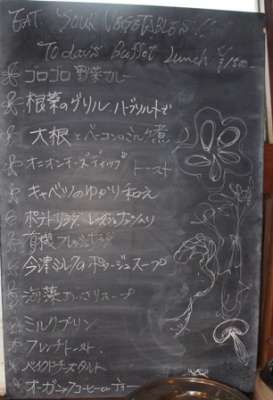 EAT YOUR VEGETABLES!!
Today's Buffet Lunch
ゴロゴロ野菜カレー
根菜のグリル
大根とベーコンの煮
オニオンチーズディップ トースト
キャベツのゆかり和え
ポテトサラダ
有機フレッシュ
今津ミルクのポタージュスープ
海藻あっさりスープ
ミルクプリン
フレンチトースト
ベイクドチーズタルト
オーガニックコーヒー or ティー